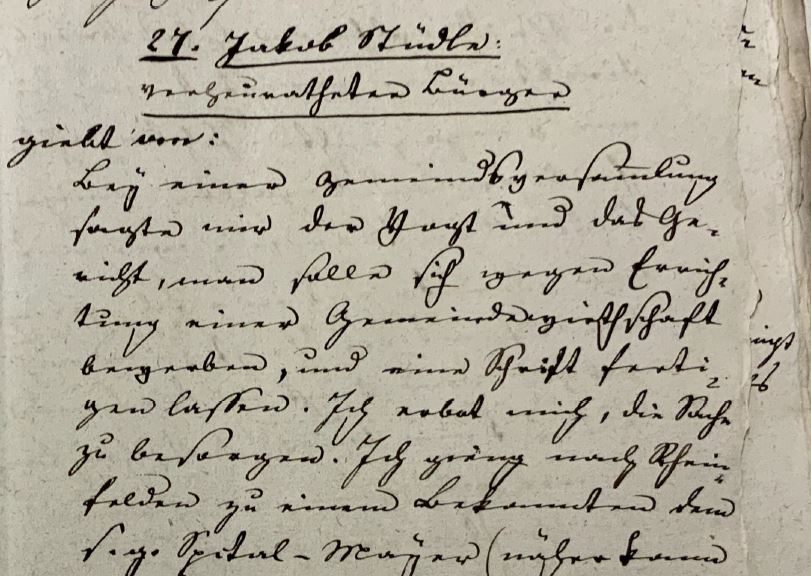 27. Jakob Stüdle:
verheuratheter Bürger
giebt vor:
Bey einer Gemeindsversam̅lung
sagte mir der Vogt und das Ge-
richt, man solle sich wegen Errich-
tung einer Gemeindewirthschaft
bewerben, und eine Schrift ferti-
gen lassen. Ich erbot mich, die Sache
zu besorgen. Ich gieng nach Rhein-
felden zu einem Bekannten dem
s. g. Spital-Mayer (näher kann